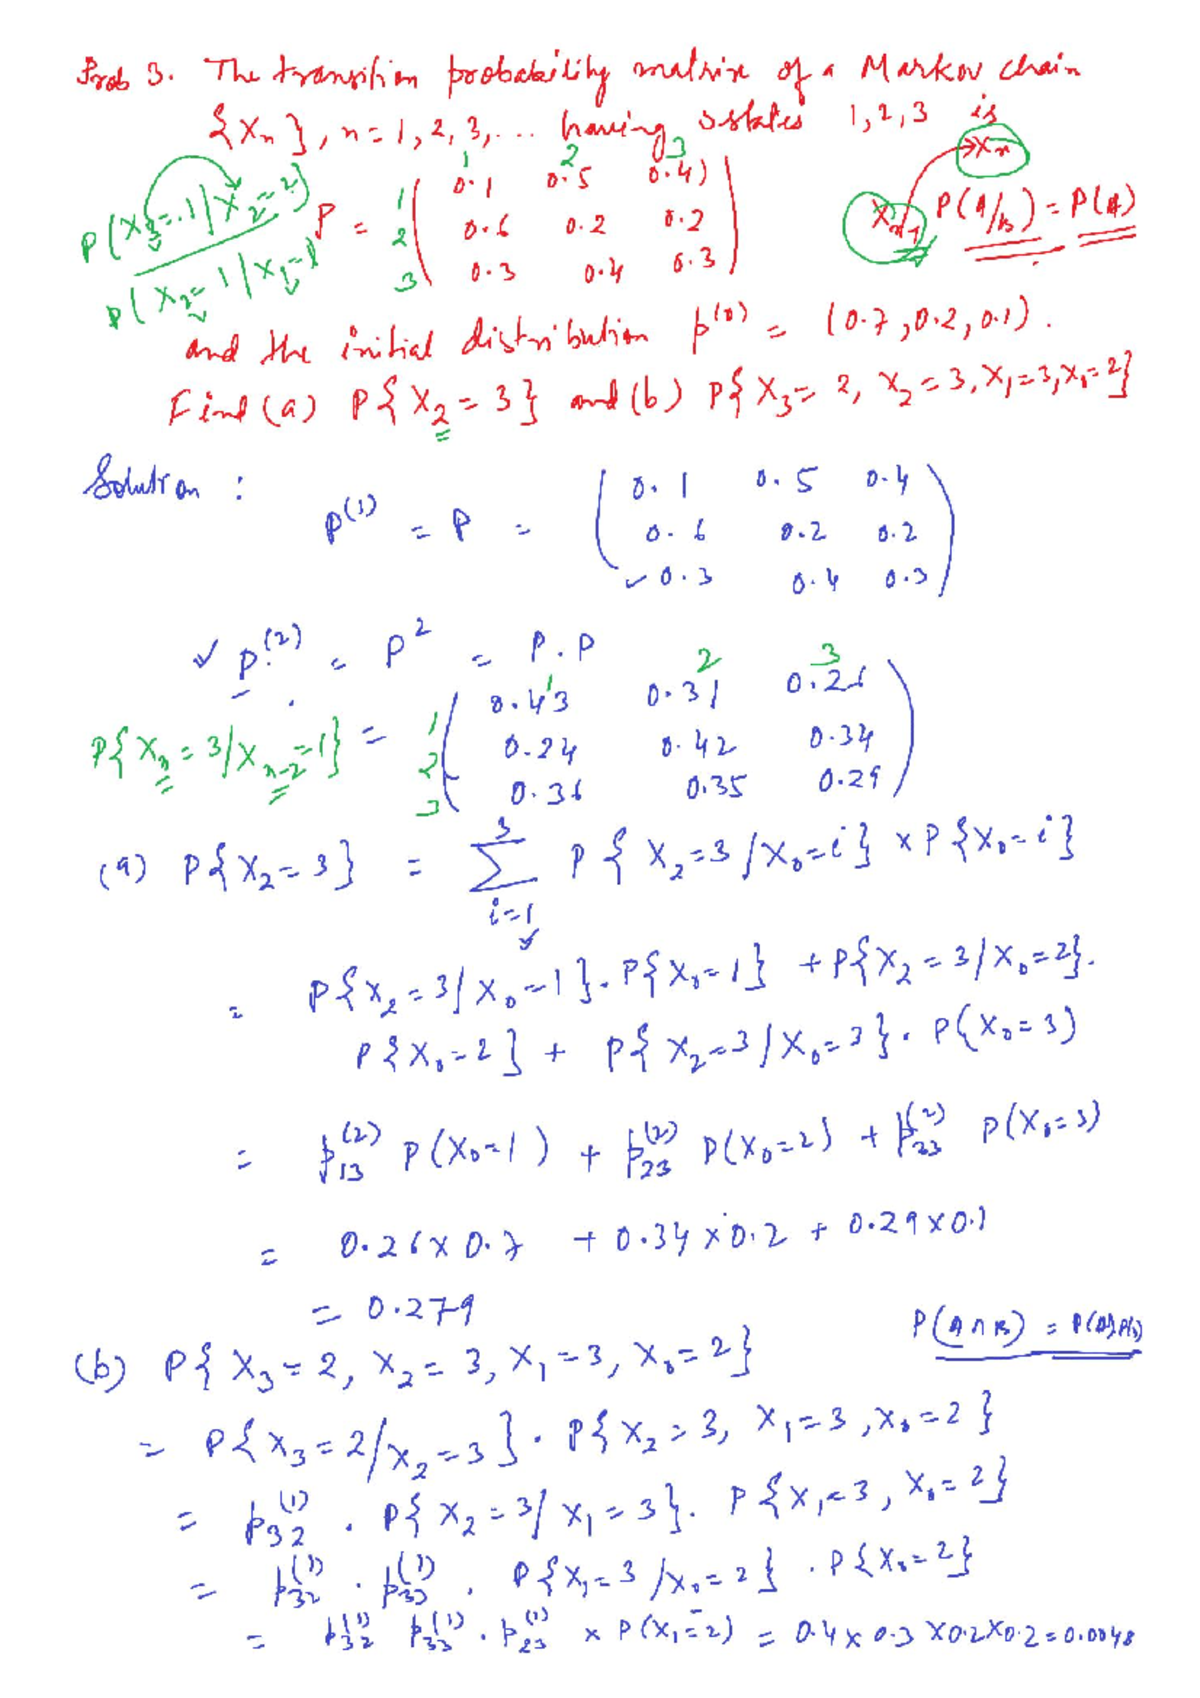 Prob 3. The transition probability matrix of a Markov chain
{Xn}, n = 1, 2, 3, ... having 3 states 1, 2, 3 is
P(X3 = 1 / X2 = 2)
P(X2 = 1 / X1 = 1)
1 2 3
P = 1 ( 0.1 0.5 0.4 )
2 0.6 0.2 0.2
3 0.3 0.4 0.3
Xn-1 → Xn
P(A/B) = P(A)
and the initial distribution p^(0) = (0.7, 0.2, 0.1).
Find (a) P{X2 = 3} and (b) P{X3 = 2, X2 = 3, X1 = 3, X0 = 2}
Solution :
P^(1) = P = ( 0.1 0.5 0.4
0.6 0.2 0.2
✓ 0.3 0.4 0.3 )
✓ P^(2) = P^2 = P.P
1 2 3
P{Xn = 3 / Xn-2 = 1} = 1 ( 0.43 0.31 0.26
2 0.24 0.42 0.34
3 0.36 0.35 0.29 )
(a) P{X2 = 3} = Σ i=1 3 P{X2 = 3 / X0 = i} × P{X0 = i}
= P{X2 = 3 / X0 = 1}. P{X0 = 1} + P{X2 = 3 / X0 = 2}.
P{X0 = 2} + P{X2 = 3 / X0 = 3}. P(X0 = 3)
= p13^(2) P(X0 = 1) + p23^(2) P(X0 = 2) + p33^(2) P(X0 = 3)
= 0.26 × 0.7 + 0.34 × 0.2 + 0.29 × 0.1
= 0.279
P(A∩B) = P(A) P(B)
(b) P{X3 = 2, X2 = 3, X1 = 3, X0 = 2}
= P{X3 = 2 / X2 = 3}. P{X2 = 3, X1 = 3, X0 = 2}
= p32^(1) . P{X2 = 3 / X1 = 3}. P{X1 = 3, X0 = 2}
= p32^(1) . p33^(1) . P{X1 = 3 / X0 = 2} . P{X0 = 2}
= p32^(1) p33^(1) . p23^(1) × P(X1 = 2) = 0.4 × 0.3 × 0.2 × 0.2 = 0.0048